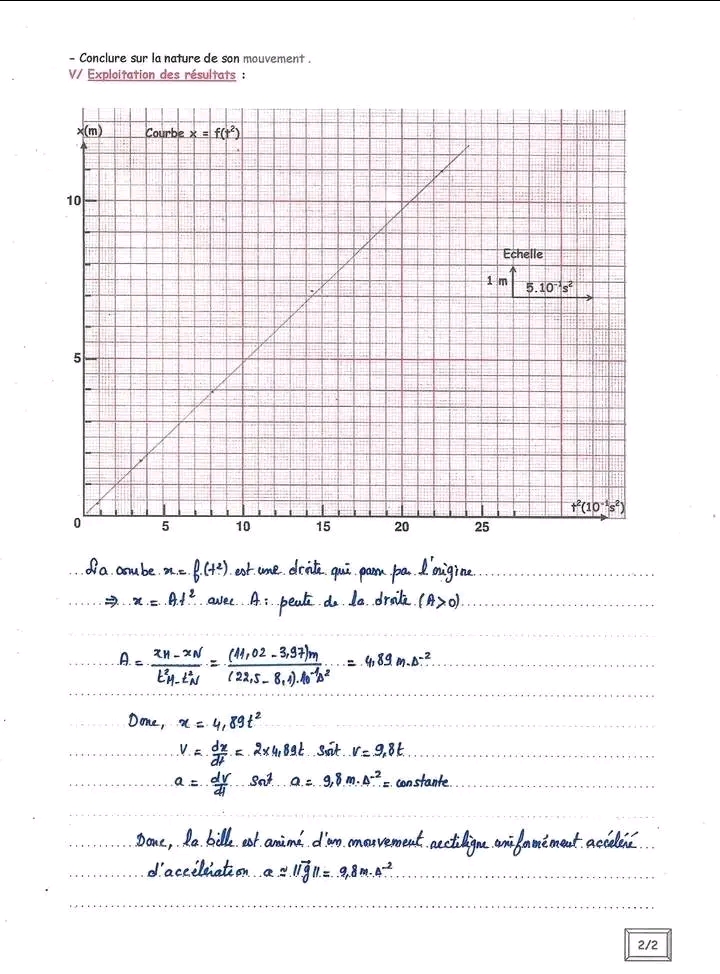 - Conclure sur la nature de son mouvement .
V/ Exploitation des résultats :
x(m)
Courbe x = f(t²)
10
Echelle
1 m
5.10⁻¹s²
5
t²(10⁻¹s²)
0 5 10 15 20 25
La courbe x = f(t²) est une droite qui passe par l'origine
⇒ x = At² avec A : pente de la droite (A>0)
A = (xM - xN)/(t²M - t²N) = (11,02 - 3,97)m/(22,5 - 8,1).10⁻¹s² = 4,89 m.s⁻²
Donc, x = 4,89t²
V = dx/dt = 2x4,89t soit v = 9,8t
a = dv/dt soit a = 9,8 m.s⁻² = constante
Donc, la bille est animé d'un mouvement rectiligne uniformément accéléré
d'accélération a ≃ ||g⃗|| = 9,8 m.s⁻²
2/2